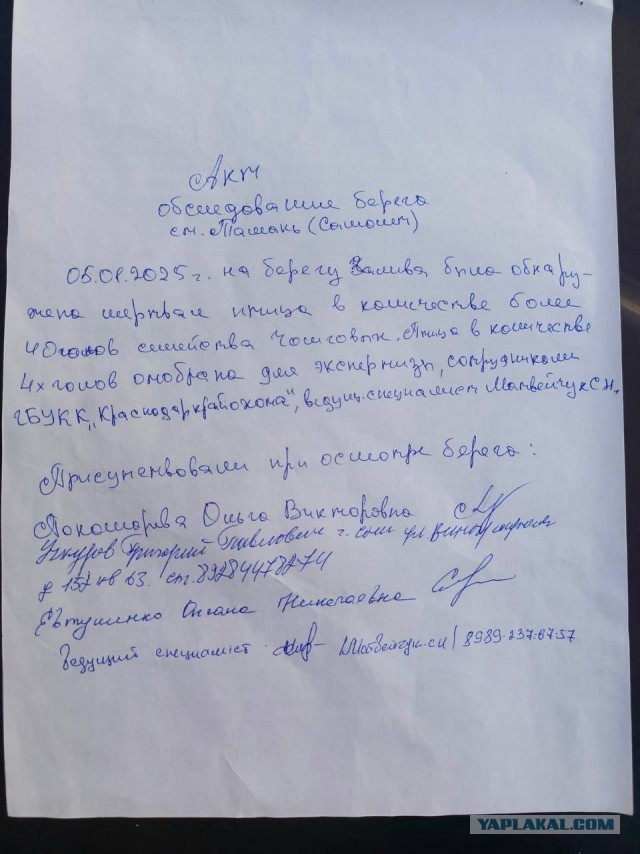 Акт
обследование берега
ст. Тамань (Сотолит)
05.01.2025 г. на берегу Залива была обнару-
жена мертвая птица в количестве более
40 голов семейства Чомговых. Птица в количестве
4х голов отобрана для экспертизы, сотрудниками
ГБУ КК „Краснодаркрайохота", ведущ. специалист Матвейчук С.Н.
Присутствовали при осмотре берега:
Ольга Викторовна
Григорий Павлович г. ул
д 152 кв 63. ст. 89284478274
Евтушенко Оксана Николаевна
Ведущий специалист Матвейчук С.Н / 8989-237-67-57
YAPLAKAL.COM